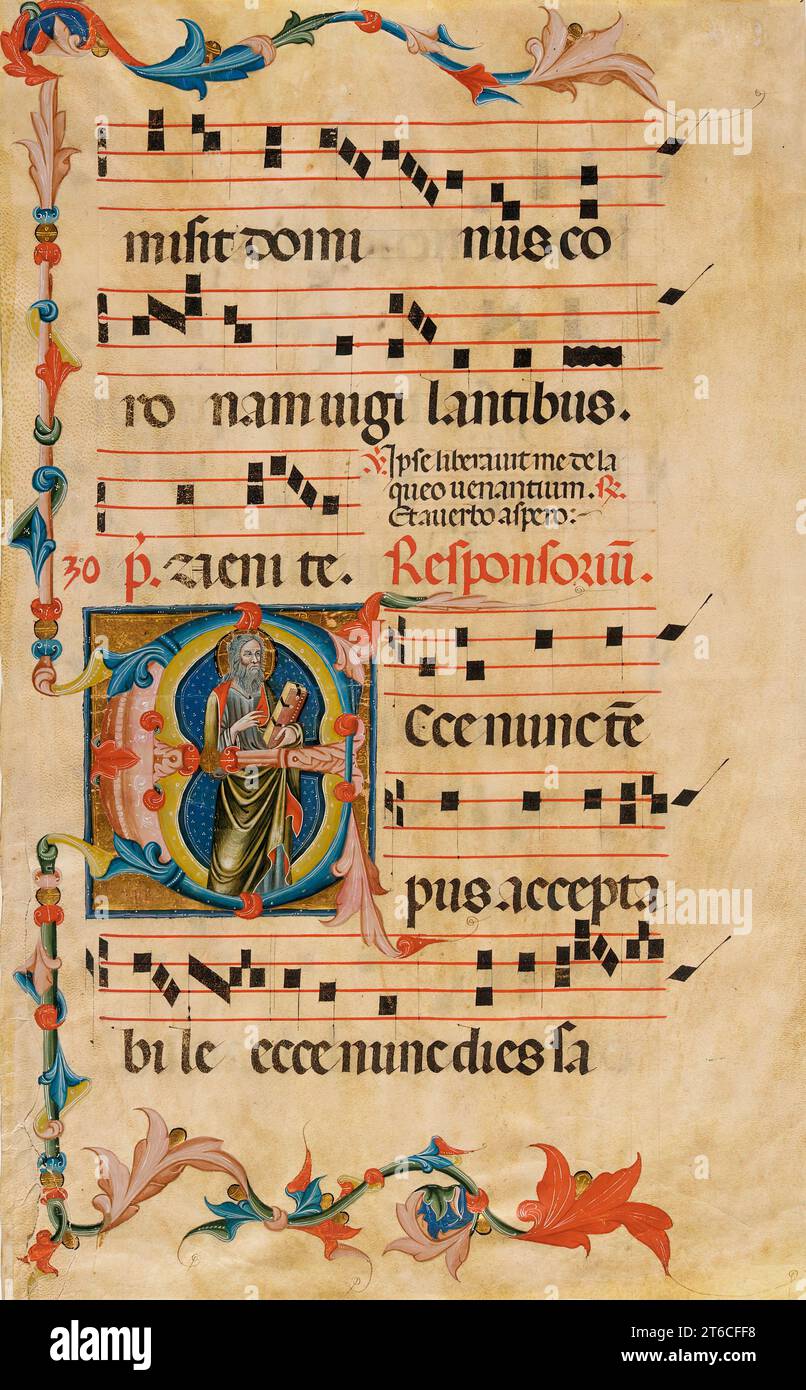 misit domi nus co
ro nam uigi lantibus.
℣. Ipse liberauit me de la
queo uenantium. ℟.
Et a uerbo aspero:~
30 p̄. zaeni te. Responsoriū.
Ecce nunc tē
pus accepta
bi le ecce nunc dies sa
alamy
Image ID: 2T6CFF8
www.alamy.com